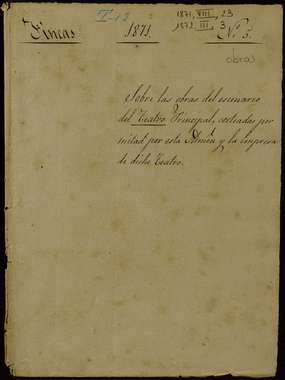 I-13
1871, VIII, 23
1872, III, 3
Fincas
1871.
Nº 5.
obras
Sobre las obras del escenario
del Teatro Principal, costeadas por
mitad por esta Admón y la Empresa
de dicho Teatro.